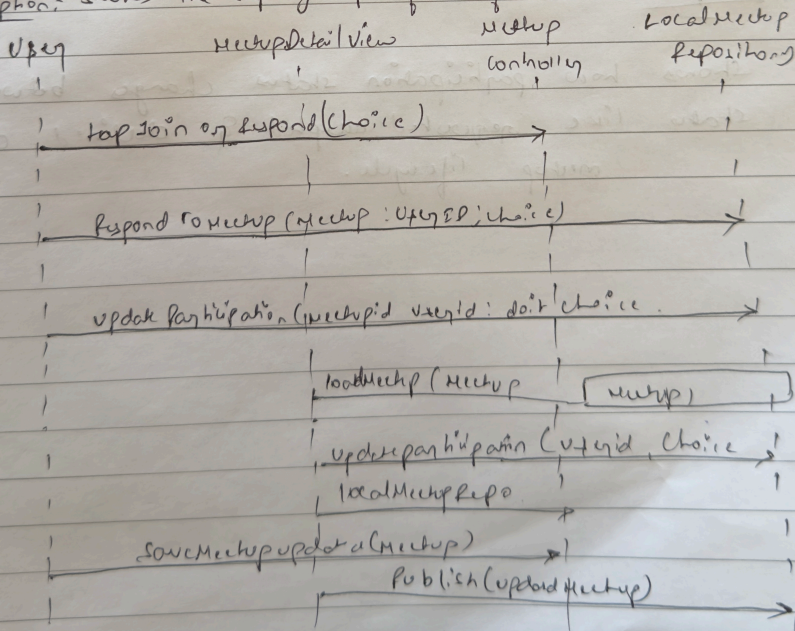 User MeetupDetailView Meetup Controller LocalMeetup Repository
tap Join or Respond (Choice)
Respond To Meetup (Meetup : UserID ; choice)
update Participation (Meetupid userid : choice
loadMeetup (Meetup Meetup)
updateparticipation (Userid, Choice
localMeetupRepo
SaveMeetupupdate (Meetup)
Publish (updated Meetup)